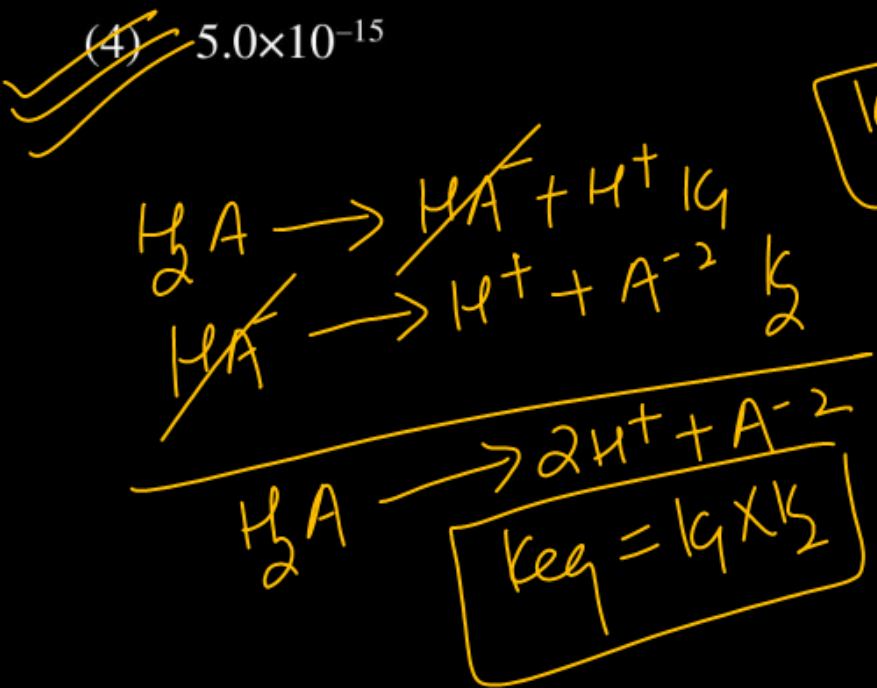 (4) 5.0×10⁻¹⁵
H₂A → HA⁻ + H⁺ K₁
HA⁻ → H⁺ + A⁻² K₂
H₂A → 2H⁺ + A⁻²
Keq = K₁ × K₂